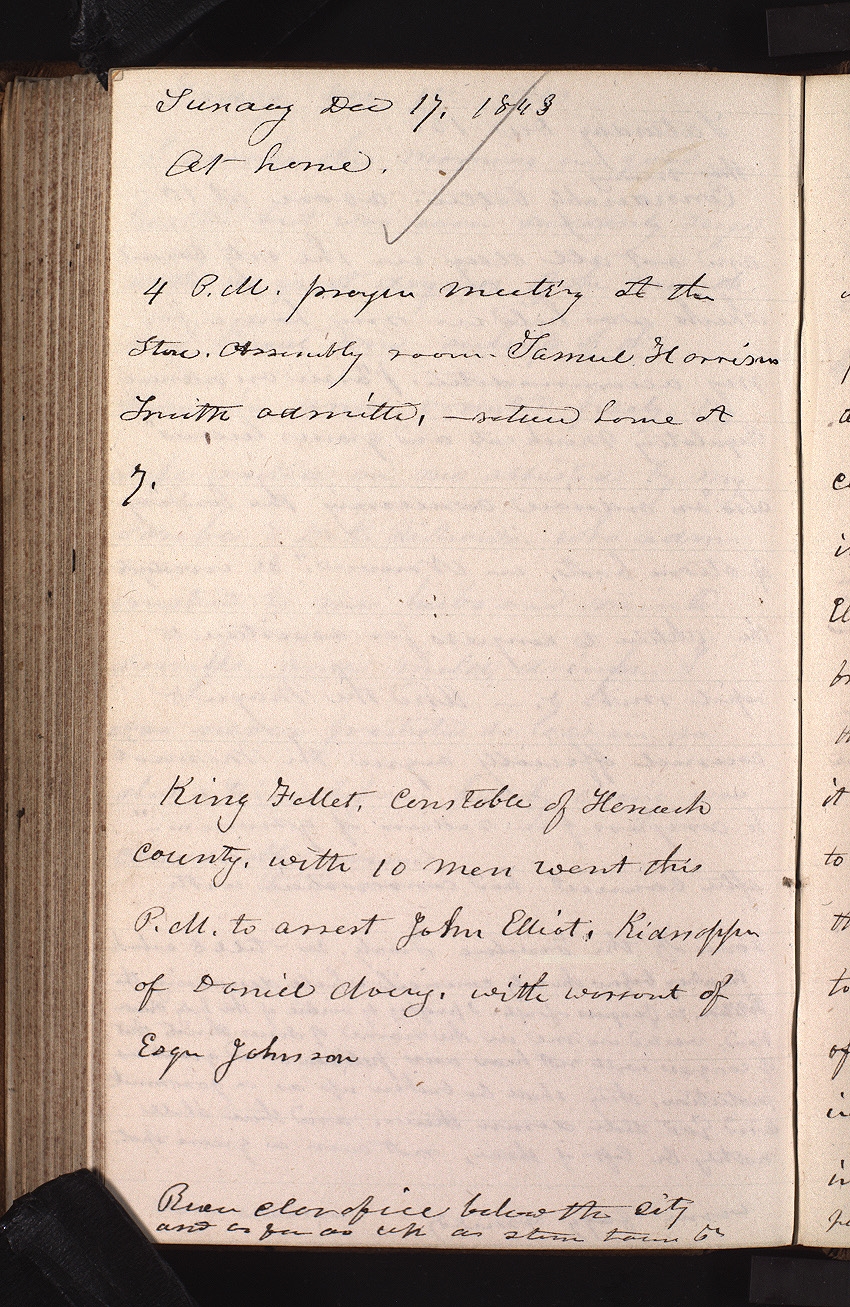 Sunday Dec 17, 1843
At home.
4 P.M. prayer meeting at the
Store. Assembly room. Samuel Harrison
Smith admitte, — return home at
7.
King Follet, Constable of Hancock
County, with 10 men went this
P.M. to arrest John Elliot, Kidnapper
of Daniel Avery, with warrant of
Esqr Johnson
River clear of ice below the city
and as far as up as stone